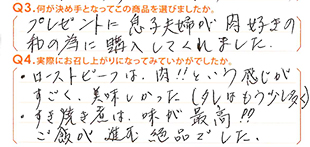 Q3.何が決め手となってこの商品を選びましたか。
プレゼントに息子夫婦が肉好きの
私の為に購入してくれました。
Q4.実際にお召し上がりになってみていかがでしたか。
・ローストビーフは、肉!!という感じが
すごく、美味しかった(タレはもう少し多く)
・すき焼き煮は、味が最高!!
ご飯が進む絶品でした。